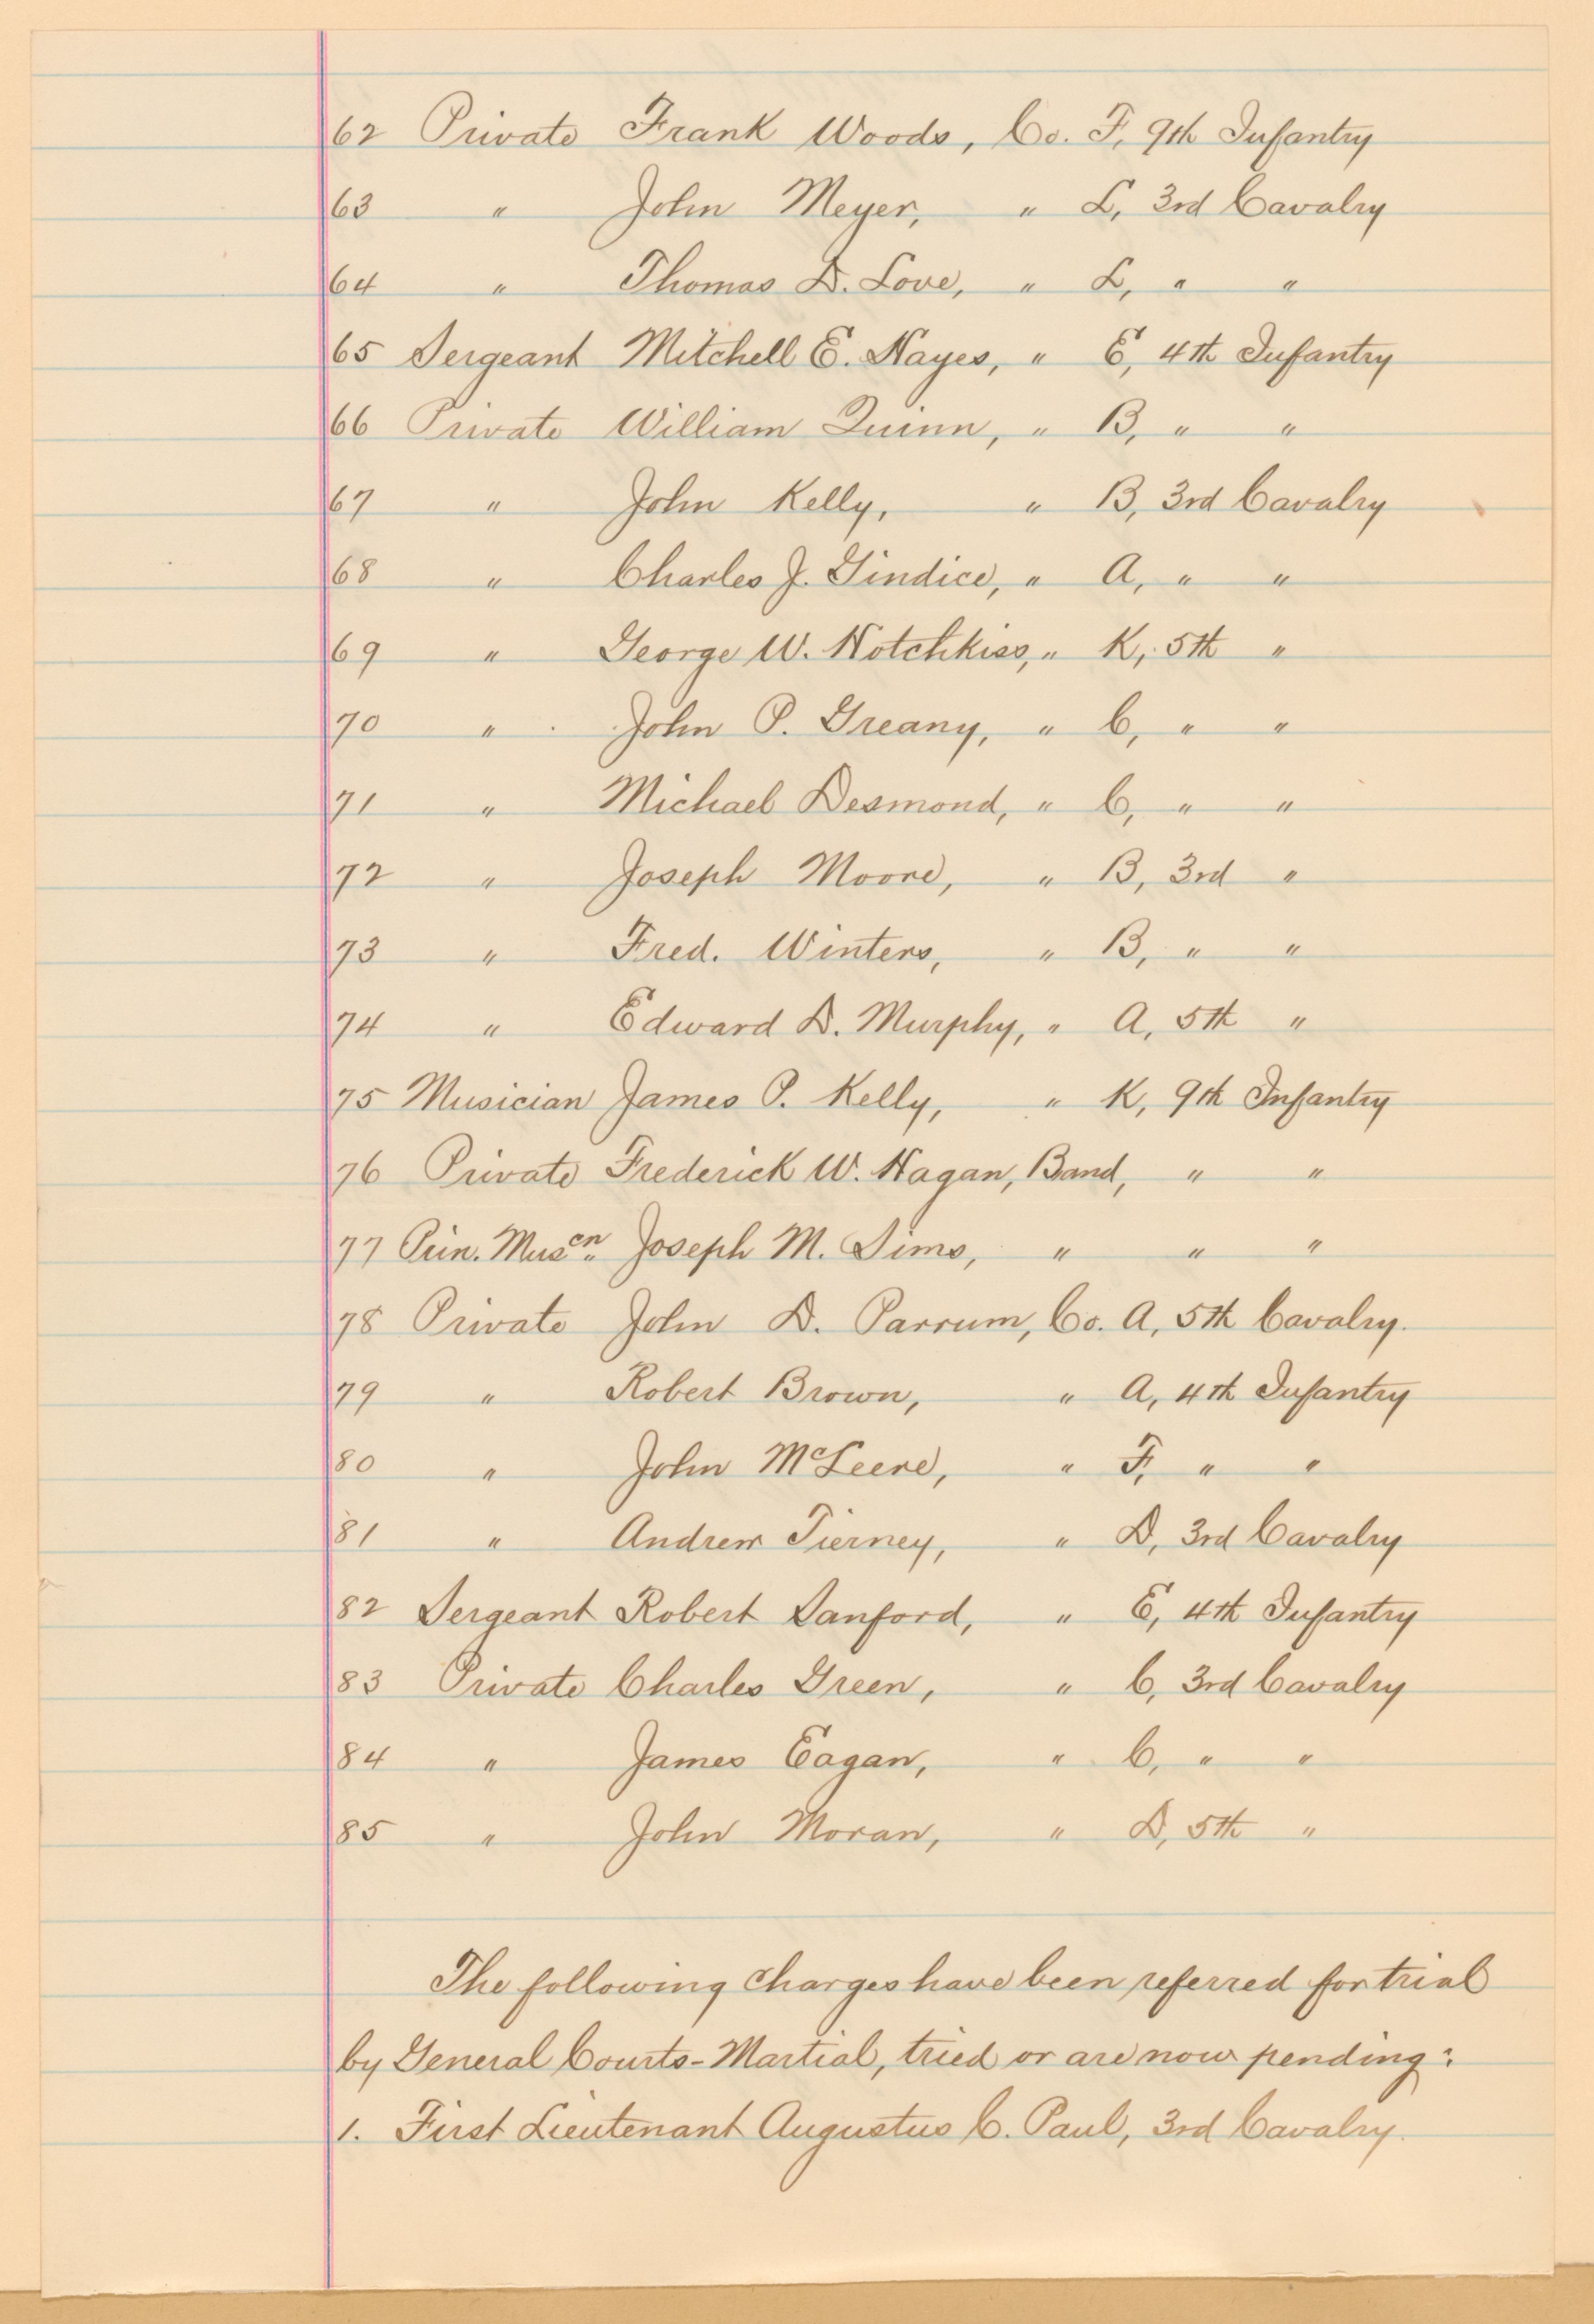 62 Private Frank Woods, Co. F, 9th Infantry
63 " John Meyer, " L, 3rd Cavalry
64 " Thomas D. Love, " L, " "
65 Sergeant Mitchell E. Hayes, " E, 4th Infantry
66 Private William Quinn, " B, " "
67 " John Kelly, " B, 3rd Cavalry
68 " Charles J. Gindice, " A, " "
69 " George W. Hotchkiss, " K, 5th "
70 " John P. Greany, " C, " "
71 " Michael Desmond, " C, " "
72 " Joseph Moore, " B, 3rd "
73 " Fred. Winters, " B, " "
74 " Edward D. Murphy, " A, 5th "
75 Musician James P. Kelly, " K, 9th Infantry
76 Private Frederick W. Hagan, Band, " "
77 Prin. Muscn. Joseph M. Sims, " " "
78 Private John D. Parrum, Co. A, 5th Cavalry.
79 " Robert Brown, " A, 4th Infantry
80 " John McLeere, " F, " "
81 " Andrew Tierney, " D, 3rd Cavalry
82 Sergeant Robert Sanford, " E, 4th Infantry
83 Private Charles Green, " C, 3rd Cavalry
84 " James Eagan, " C, " "
85 " John Moran, " D, 5th "
The following charges have been referred for trial
by General Courts-Martial, tried or are now pending:
1. First Lieutenant Augustus C. Paul, 3rd Cavalry.